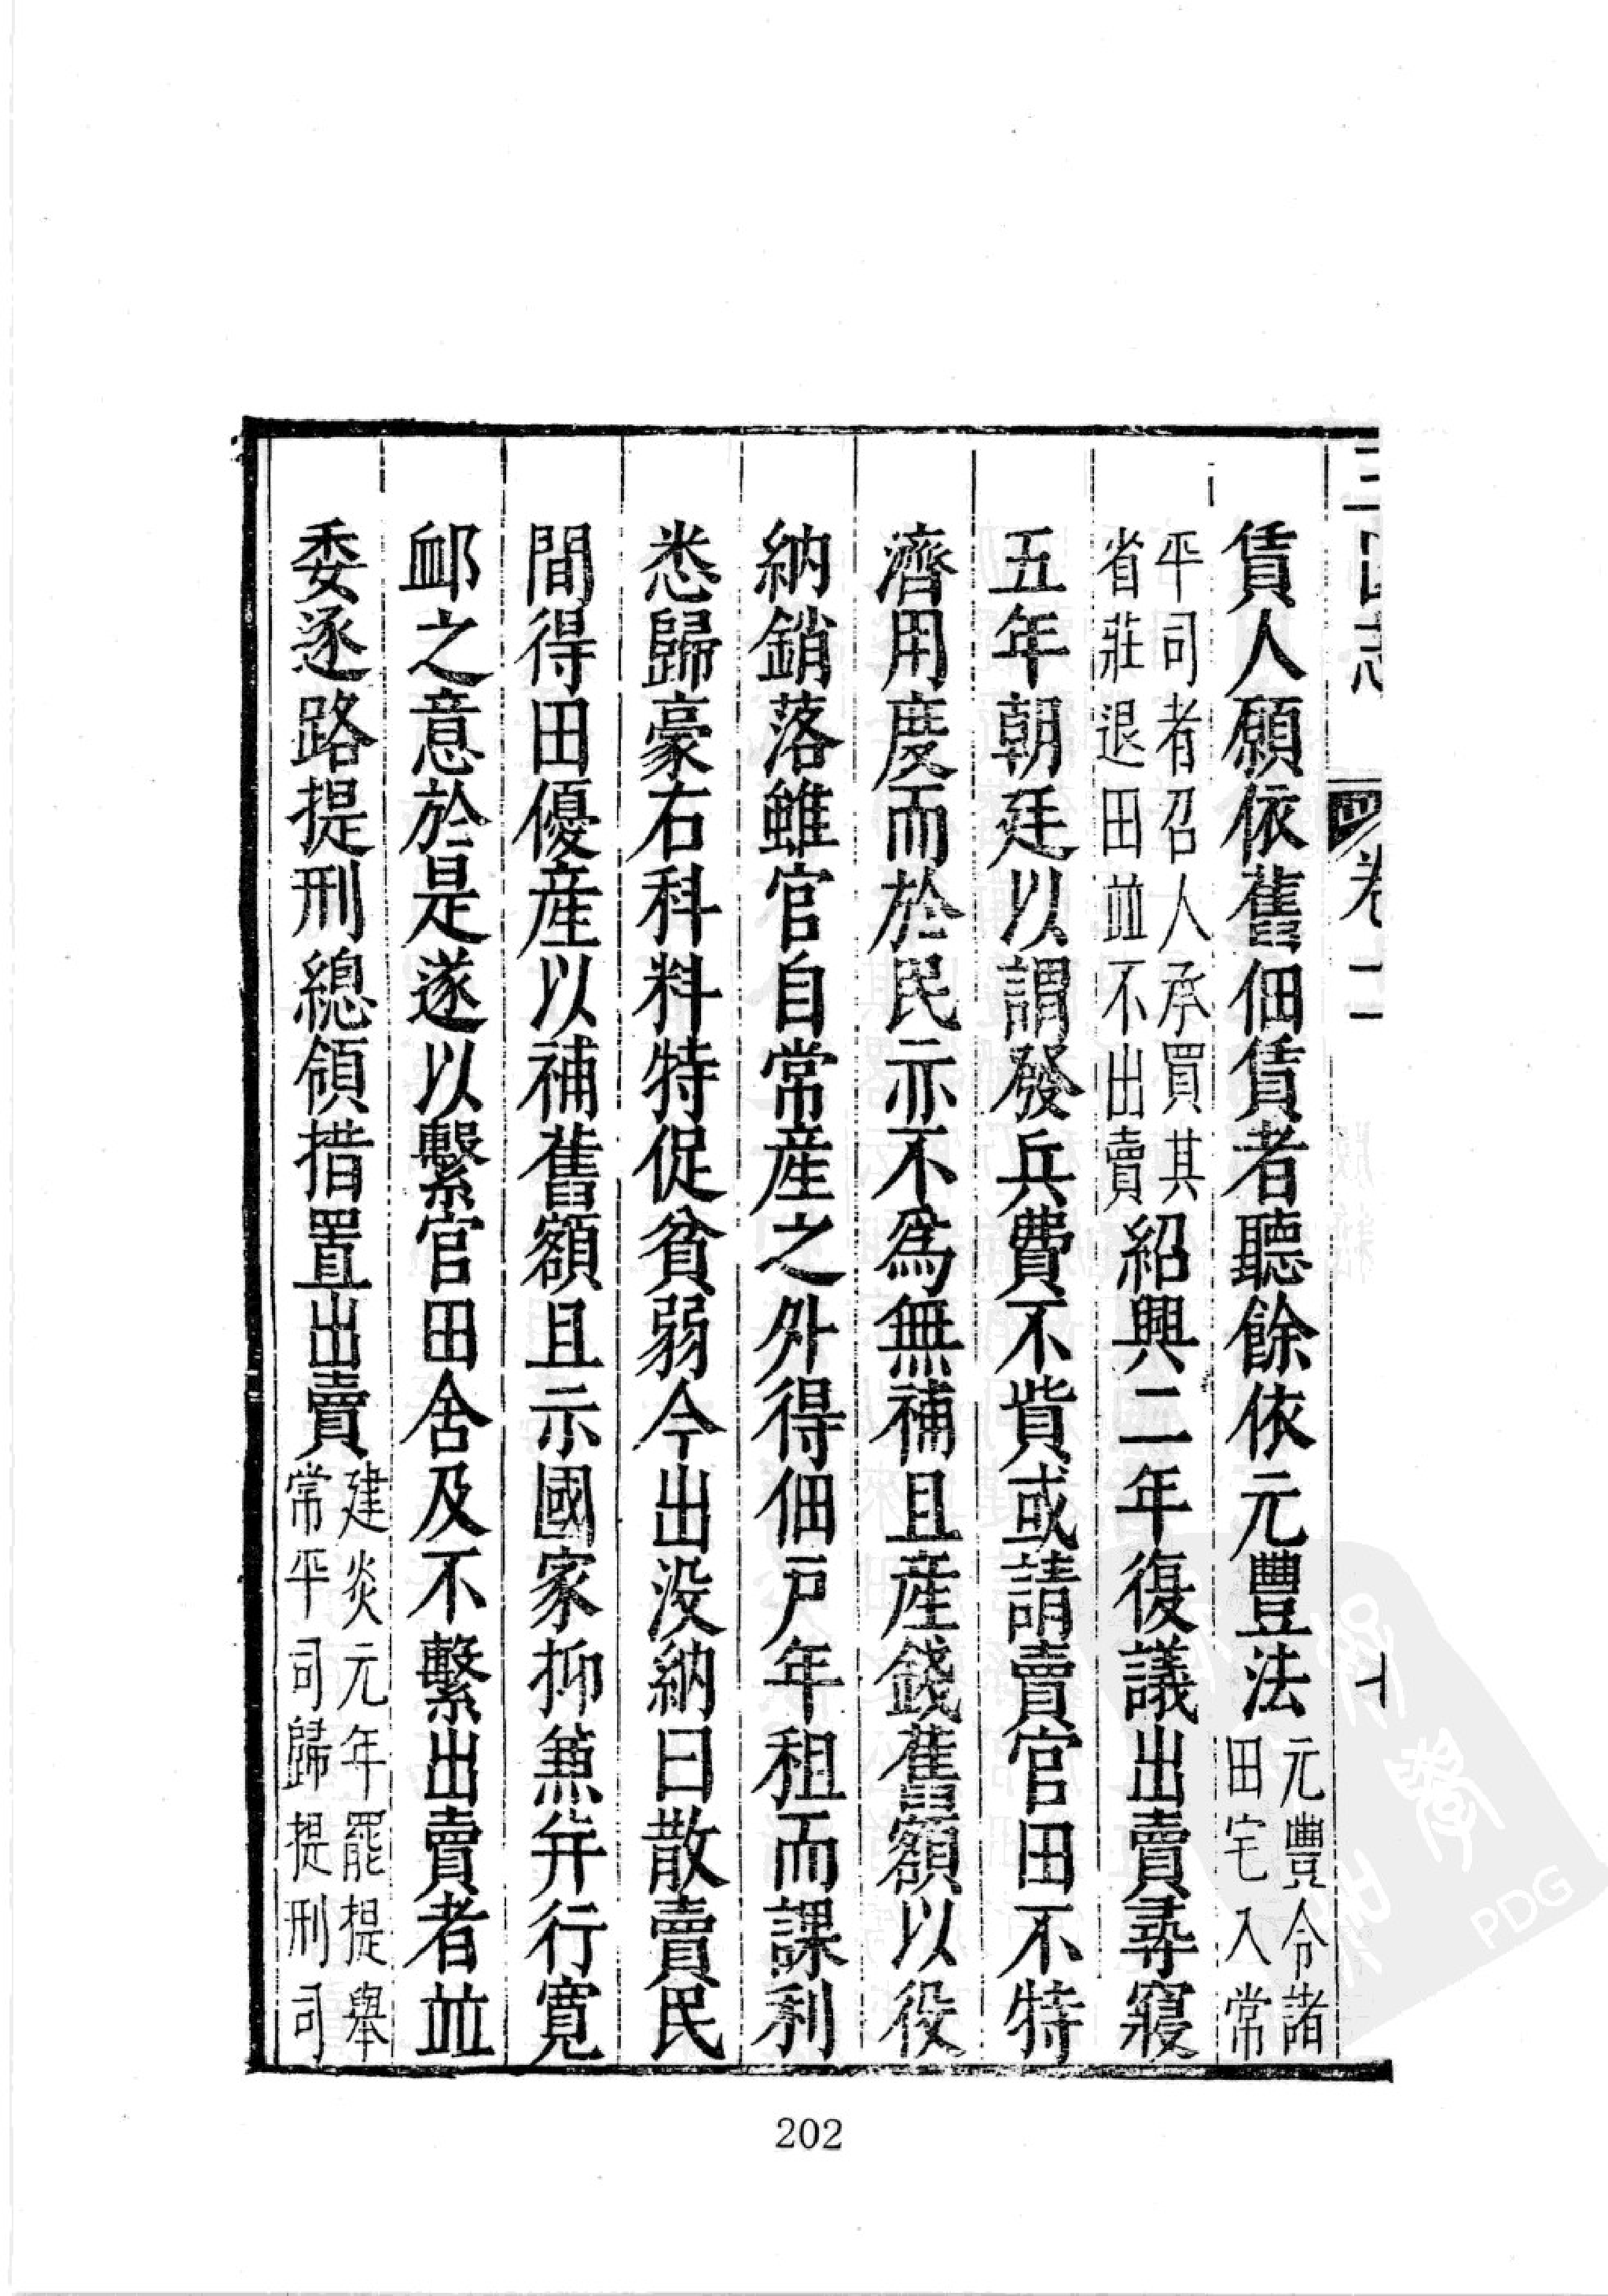 三山志 卷十一 七
賃人願依舊佃賃者聽餘依元豐法元豐令諸田宅入常
平司者召人承買其省莊退田並不出賣紹興二年復議出賣尋寢
五年朝廷以謂發兵費不貲或請賣官田不特
濟用度而於民亦不爲無補且產錢舊額以役
納銷落雖官自常產之外得佃戶年租而課利
悉歸豪右科料特促貧弱今出没納曰散賣民
間得田優產以補舊額且示國家抑兼并行寬
卹之意於是遂以繫官田舍及不繫出賣者並
委逐路提刑總領措置出賣建炎元年罷提舉常平司歸提刑司
202
PDG